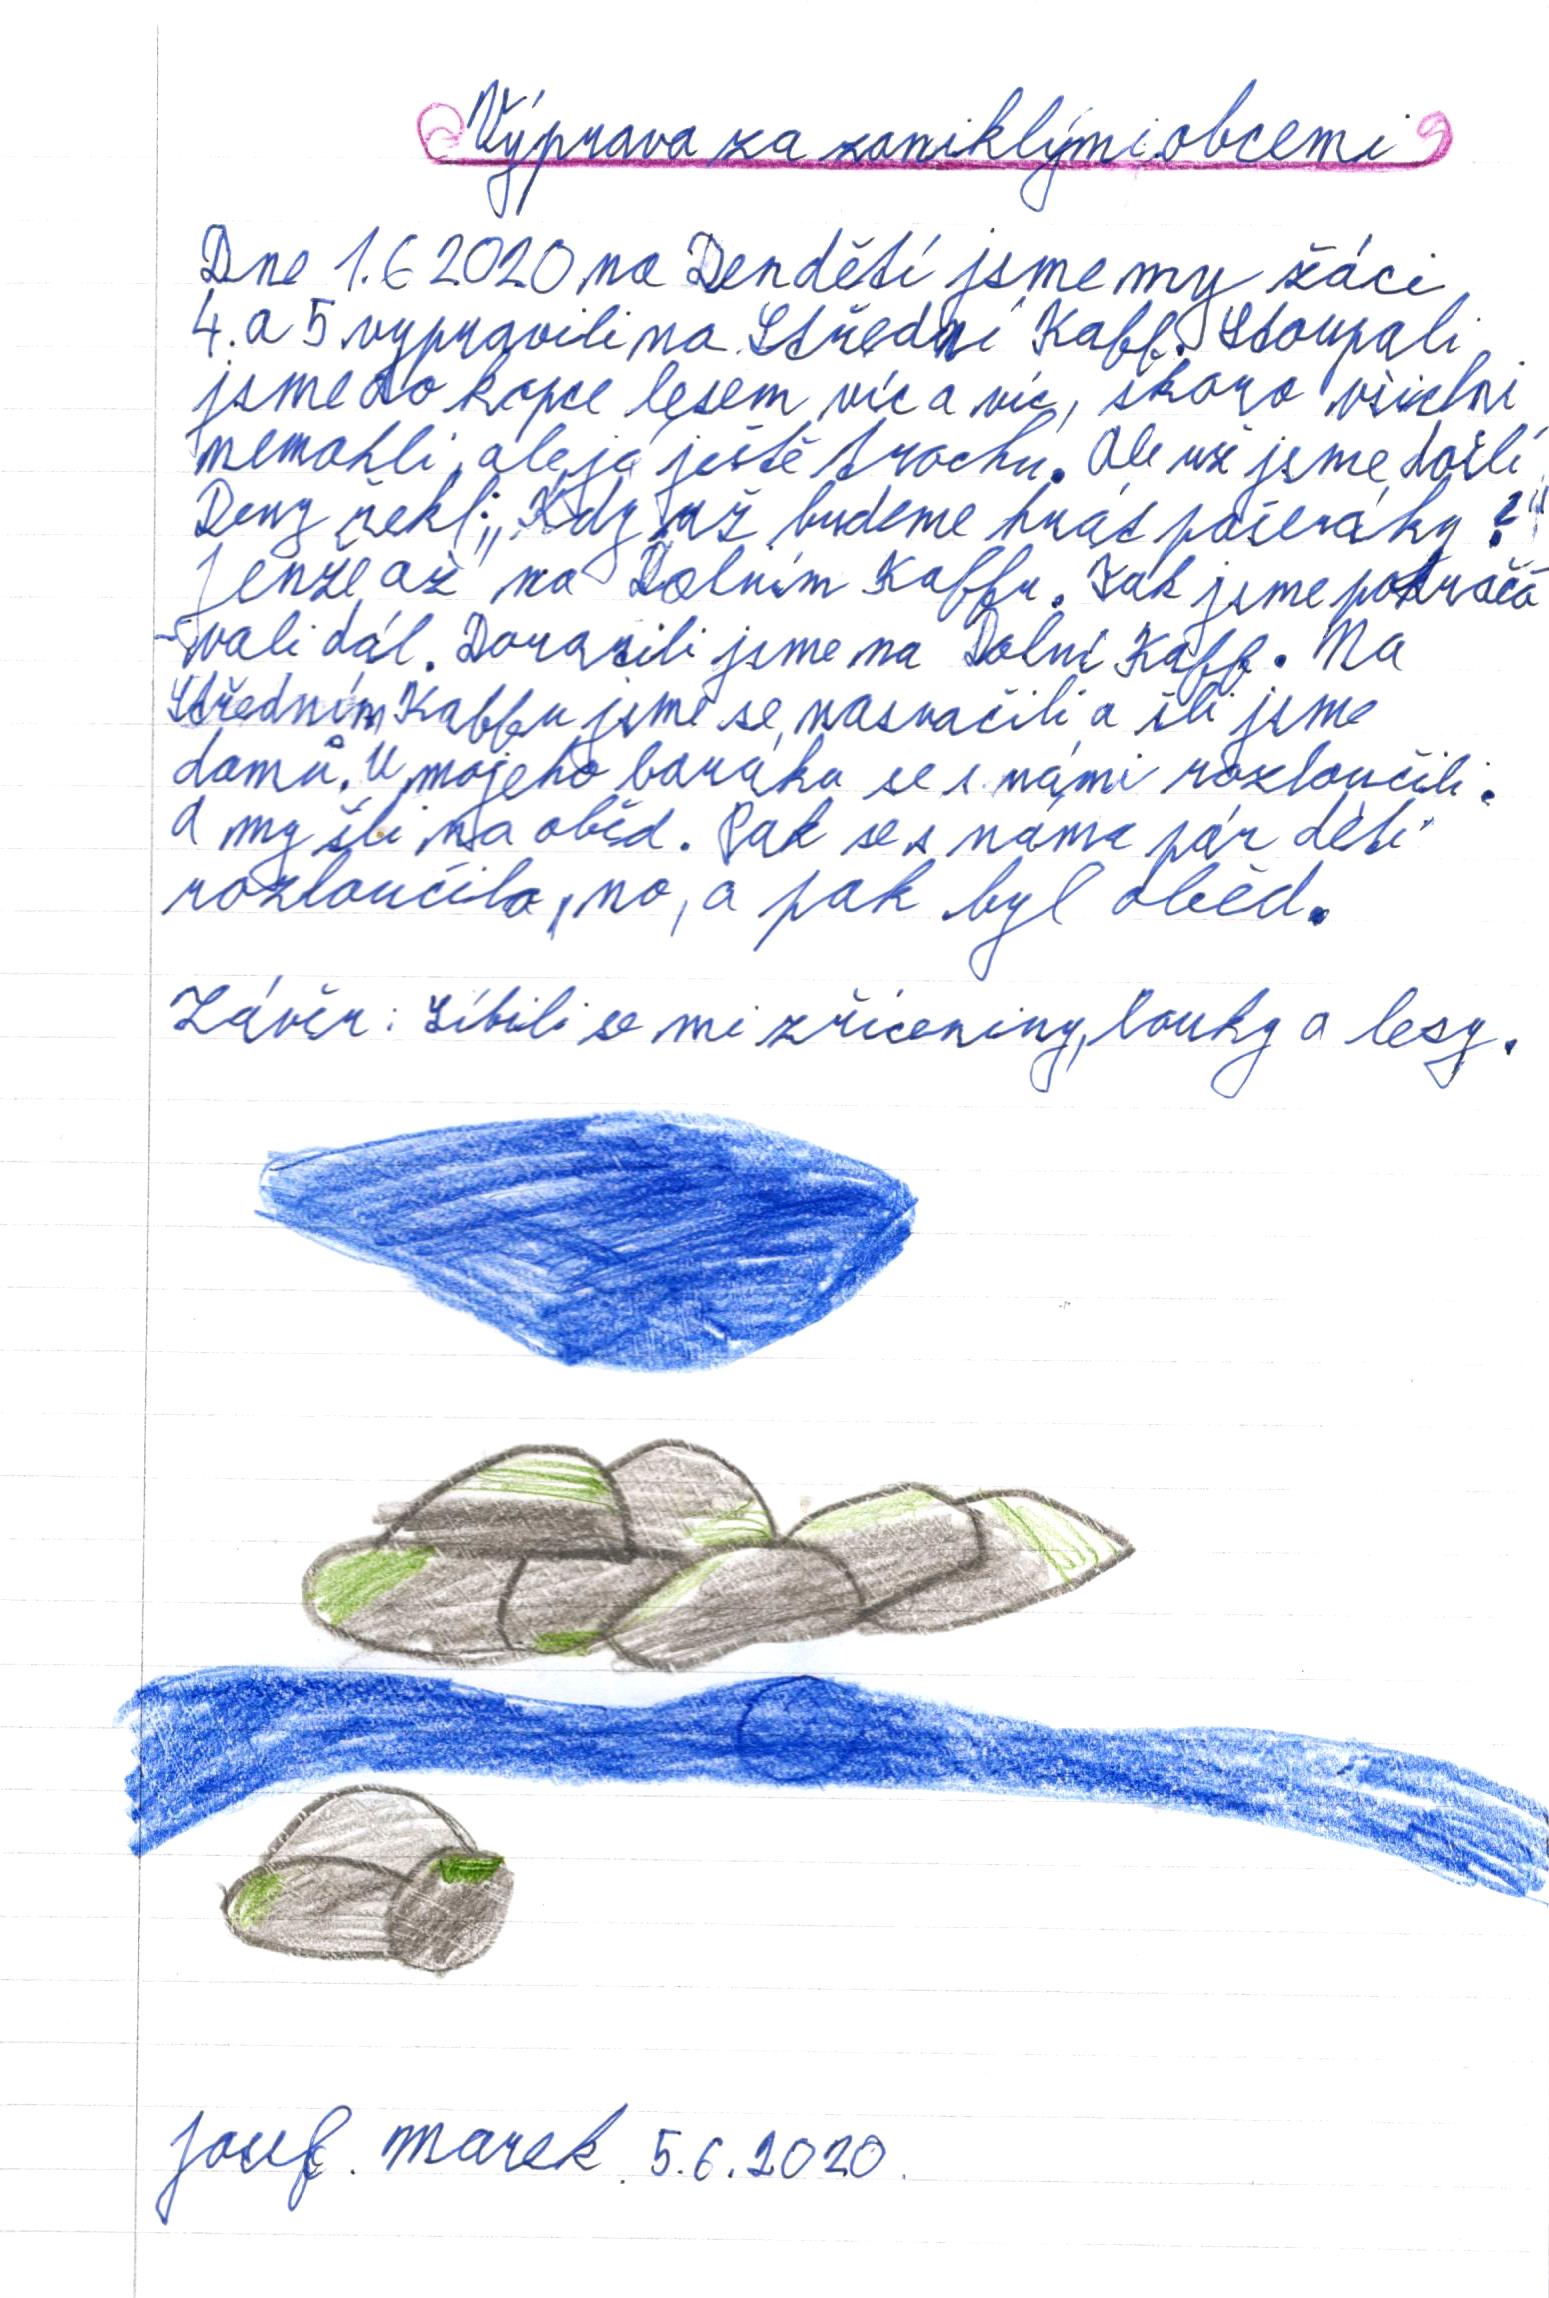 Výprava za zaniklými obcemi
Dne 1.6 2020 na Den dětí jsme my žáci
4. a 5 vypravili na Střední Kaff. Stoupali
jsme do kopce lesem víc a víc, skoro všichni
nemohli, ale já ještě trochu. Ale už jsme došli
Deny řekl: „Kdy už budeme hrát pašeráky?"
Jenže až na Dolním Kaffu. Tak jsme pokračo
vali dál. Dorazili jsme na Dolní Kaff. Na
Středním Kaffu jsme se nasvačili a šli jsme
domů. U mojeho baráku se s námi rozloučili.
A my šli na oběd. Pak se s náma pár dětí
rozloučilo, no, a pak byl oběd.
Závěr: Líbili se mi zříceniny, louky a lesy.
Josef. Marek. 5.6.2020.